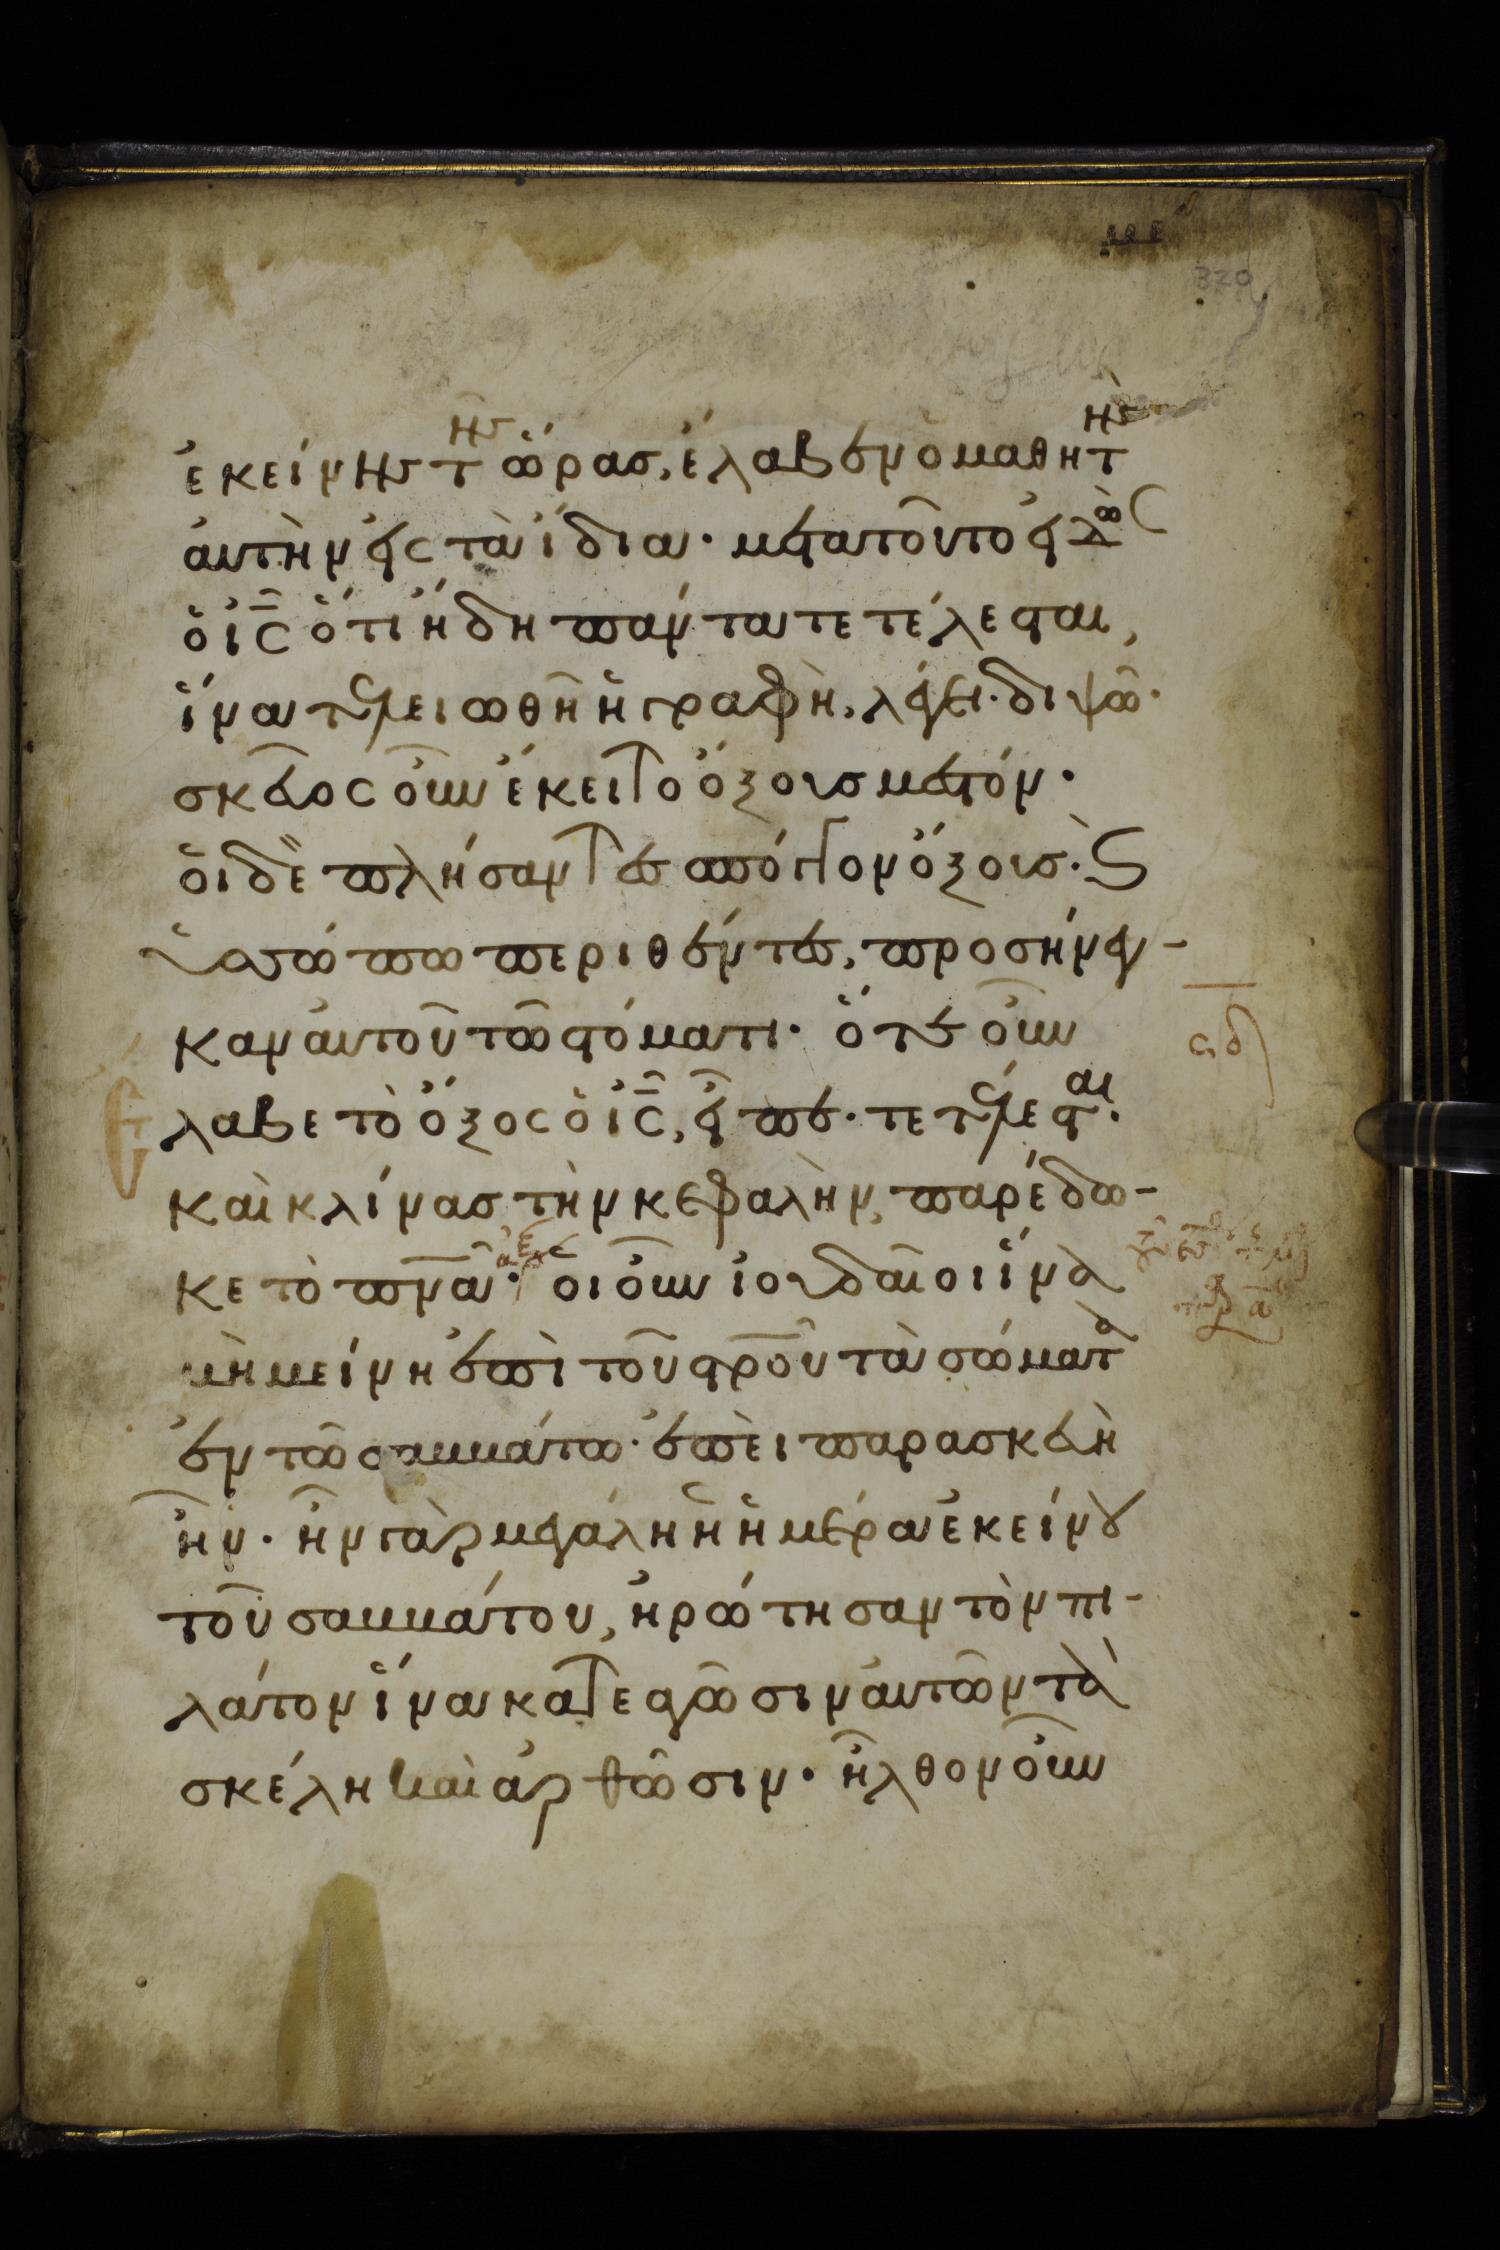 320
ἐκείνης τῆς ὥρας, ἔλαβεν ὁ μαθητὴς
αὐτὴν εἰς τὰ ἴδια· μετὰ τοῦτο εἰδὼς
ὁ ις ὅτι ἤδη πάντα τετέλεσται,
ἵνα τελειωθῆ ἡ γραφὴ, λέγει· διψῶ·
σκεῦος οὖν ἔκειτο ὄξους μεστόν·
οἱ δὲ πλήσαντες σπόγγον ὄξους· καὶ
ὑσώπω περιθέντες, προσήνεγ-
καν αὐτοῦ τῶ στόματι· ὅτε οὖν
λαβε τὸ ὄξος ὁ ις, εἶπε· τετέλεσται·
καὶ κλίνας τὴν κεφαλὴν, παρέδω-
κε τὸ πνα· οἱ οὖν ἰουδαῖοι ἵνα
μὴ μείνη ἐπὶ τοῦ στροῦ τὰ σώματα
ἐν τῶ σαββάτω· ἐπεὶ παρασκευὴ
ἦν· ἦν γὰρ μεγάλη ἡ ἡμέρα ἐκείνου
τοῦ σαββάτου, ἠρώτησαν τὸν πι-
λάτον ἵνα κατεαγῶσιν αὐτῶν τὰ
σκέλη καὶ ἀρθῶσιν· ἦλθον οὖν